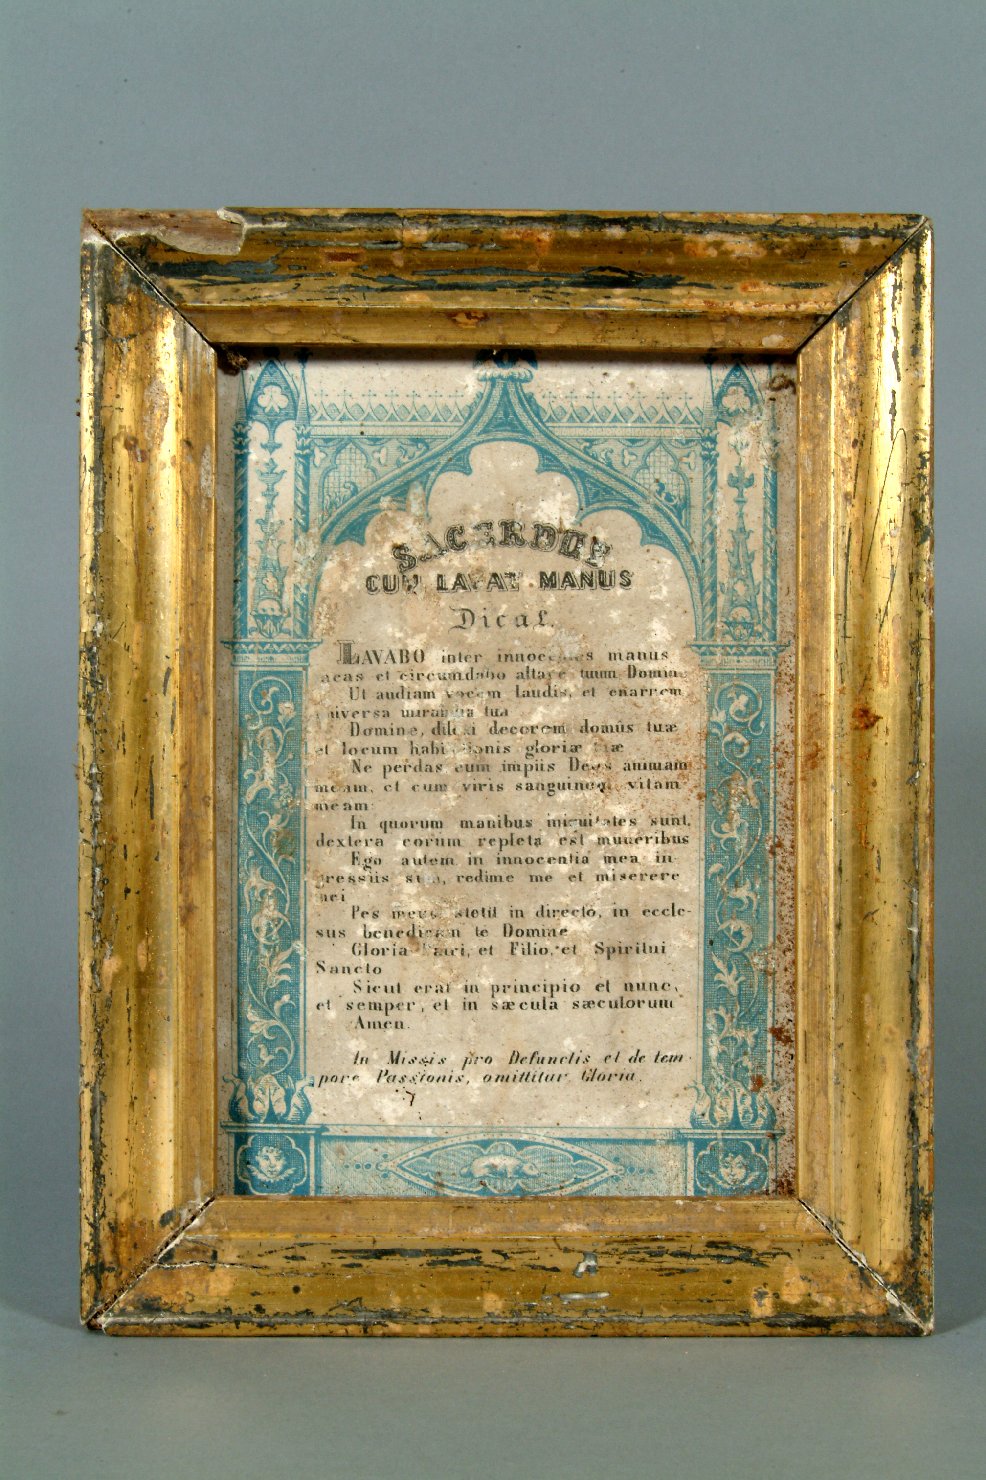 SACERDOS
CUM LAVAT MANUS
Dical.
LAVABO inter innocentes manus
meas et circumdabo altare tuum Domine
Ut audiam vocem laudis, et enarrem
universa mirabilia tua
Domine, dilexi decorem domûs tuæ
et locum habitationis gloriæ tuæ
Ne perdas cum impiis Deus animam
meam, et cum viris sanguinum vitam
meam:
In quorum manibus iniquitates sunt,
dextera eorum repleta est muneribus
Ego autem in innocentia mea in-
gressus sum, redime me et miserere
mei
Pes meus stetit in directo, in eccle-
siis benedicam te Domine
Gloria Patri, et Filio, et Spiritui
Sancto
Sicut erat in principio et nunc,
et semper, et in sæcula sæculorum
Amen.
In Missis pro Defunctis et de tem-
pore Passionis, omittitur Gloria.